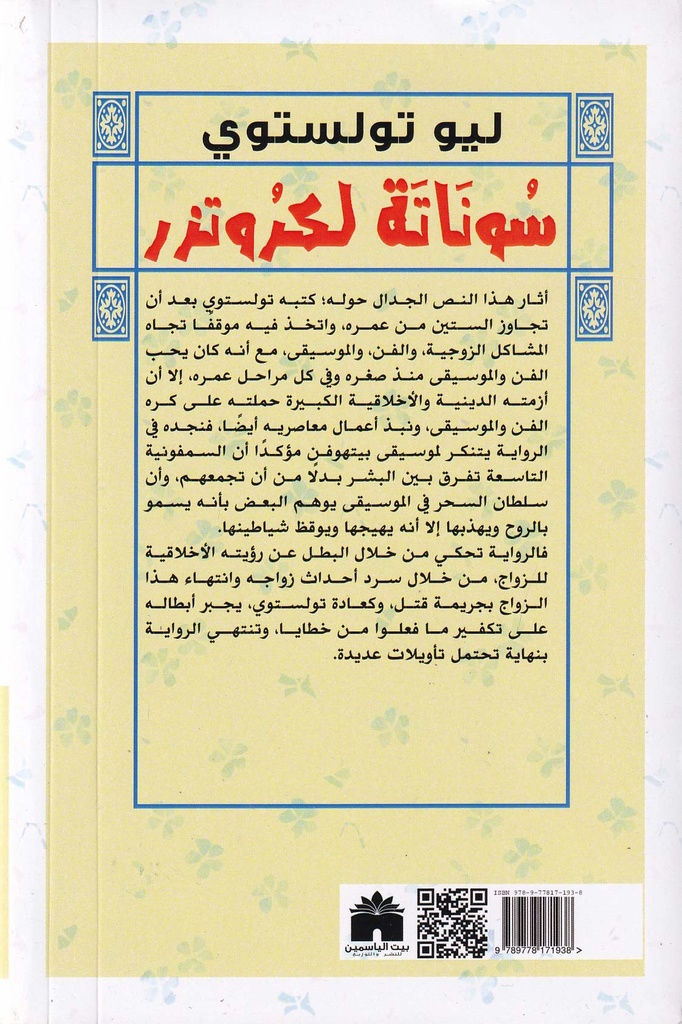 ليو تولستوي
سُونَاتَة لكرُوتزر
أثار هذا النص الجدال حوله؛ كتبه تولستوي بعد أن
تجاوز الستين من عمره، واتخذ فيه موقفًا تجاه
المشاكل الزوجية، والفن، والموسيقى، مع أنه كان يحب
الفن والموسيقى منذ صغره وفي كل مراحل عمره، إلا أن
أزمته الدينية والأخلاقية الكبيرة حملته على كره
الفن والموسيقى، ونبذ أعمال معاصريه أيضًا، فنجده في
الرواية يتنكر لموسيقى بيتهوفن مؤكدًا أن السمفونية
التاسعة تفرق بين البشر بدلًا من أن تجمعهم، وأن
سلطان السحر في الموسيقى يوهم البعض بأنه يسمو
بالروح ويهذبها إلا أنه يهيجها ويوقظ شياطينها.
فالرواية تحكي من خلال البطل عن رؤيته الأخلاقية
للزواج، من خلال سرد أحداث زواجه وانتهاء هذا
الزواج بجريمة قتل، وكعادة تولستوي، يجبر أبطاله
على تكفير ما فعلوا من خطايا، وتنتهي الرواية
بنهاية تحتمل تأويلات عديدة.
ISBN 978-9-77817-193-8
9 789778 171938 >
بيت الياسمين
للنشر والتوزيع